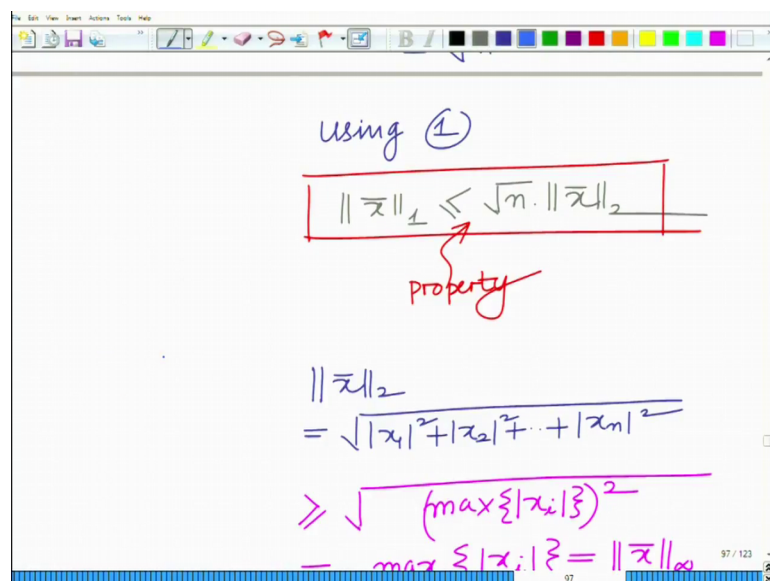 File Edit View Insert Actions Tools Help
B I
using ①
‖x̄‖₁ ⩽ √n. ‖x̄‖₂
property
‖x̄‖₂
= √|x₁|²+|x₂|²+..+|xn|²
⩾ √(max{|xi|})²
= max {|xi|} = ‖x̄‖∞
97 / 123
97